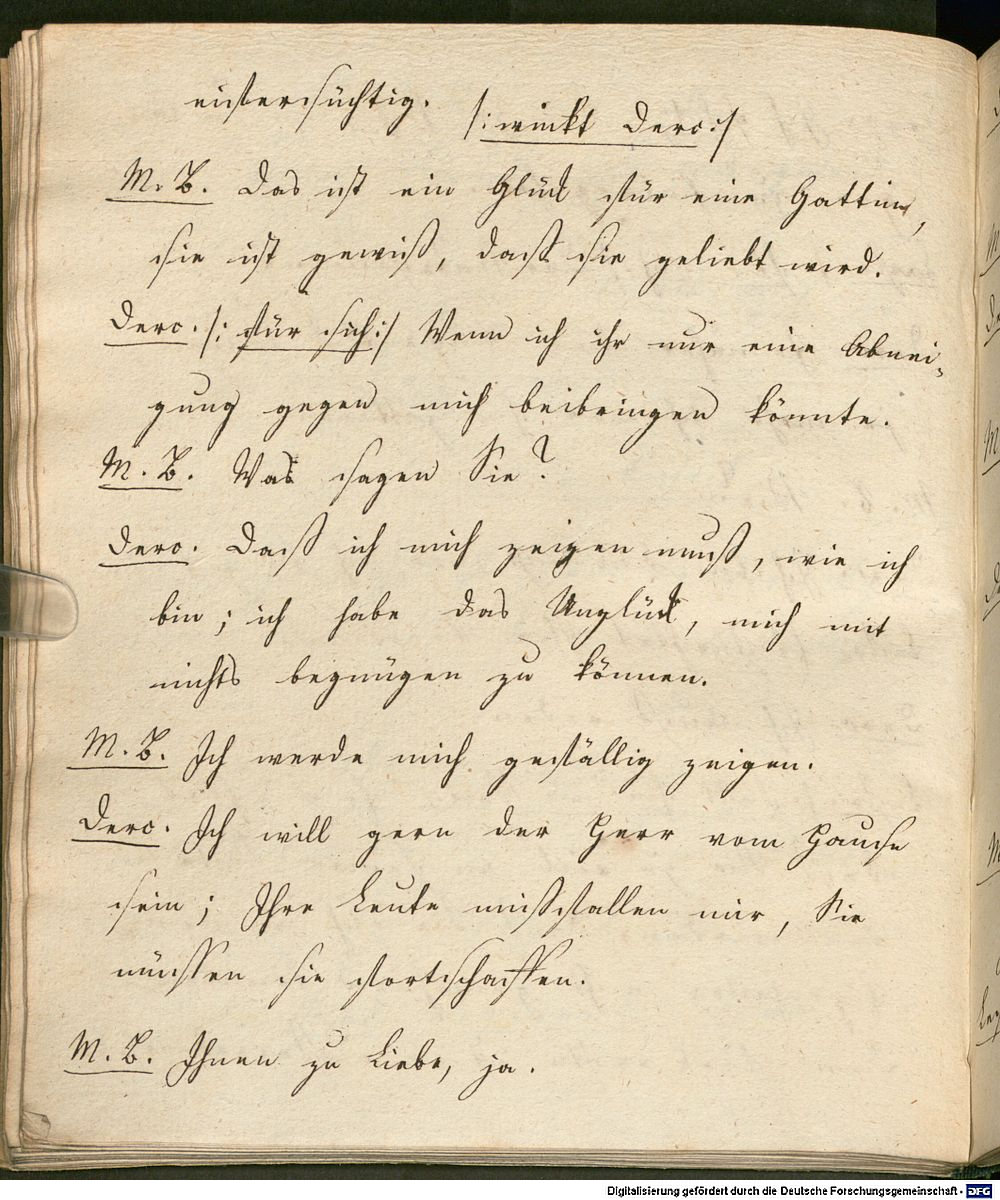 eifersüchtig.
/: winkt Derv :/
M. B. Das ist ein Glük für eine Gattin,
sie ist gewiß, daß sie geliebt wird.
Derv. /: für sich :/ Wenn ich ihr nur eine Abnei-
gung gegen mich beibringen könnte.
M. B. Was sagen Sie?
Derv. Daß ich mich zeigen muß, wie ich
bin; ich habe das Unglük, mich mit
nichts begnügen zu können.
M. B. Ich werde mich gefällig zeigen.
Derv. Ich will gern der Herr vom Hause
sein; Ihre Leute mißfallen mir, Sie
müssen sie fortschaffen.
M. B. Ihnen zu Liebe, ja.
Digitalisierung gefördert durch die Deutsche Forschungsgemeinschaft - DFG